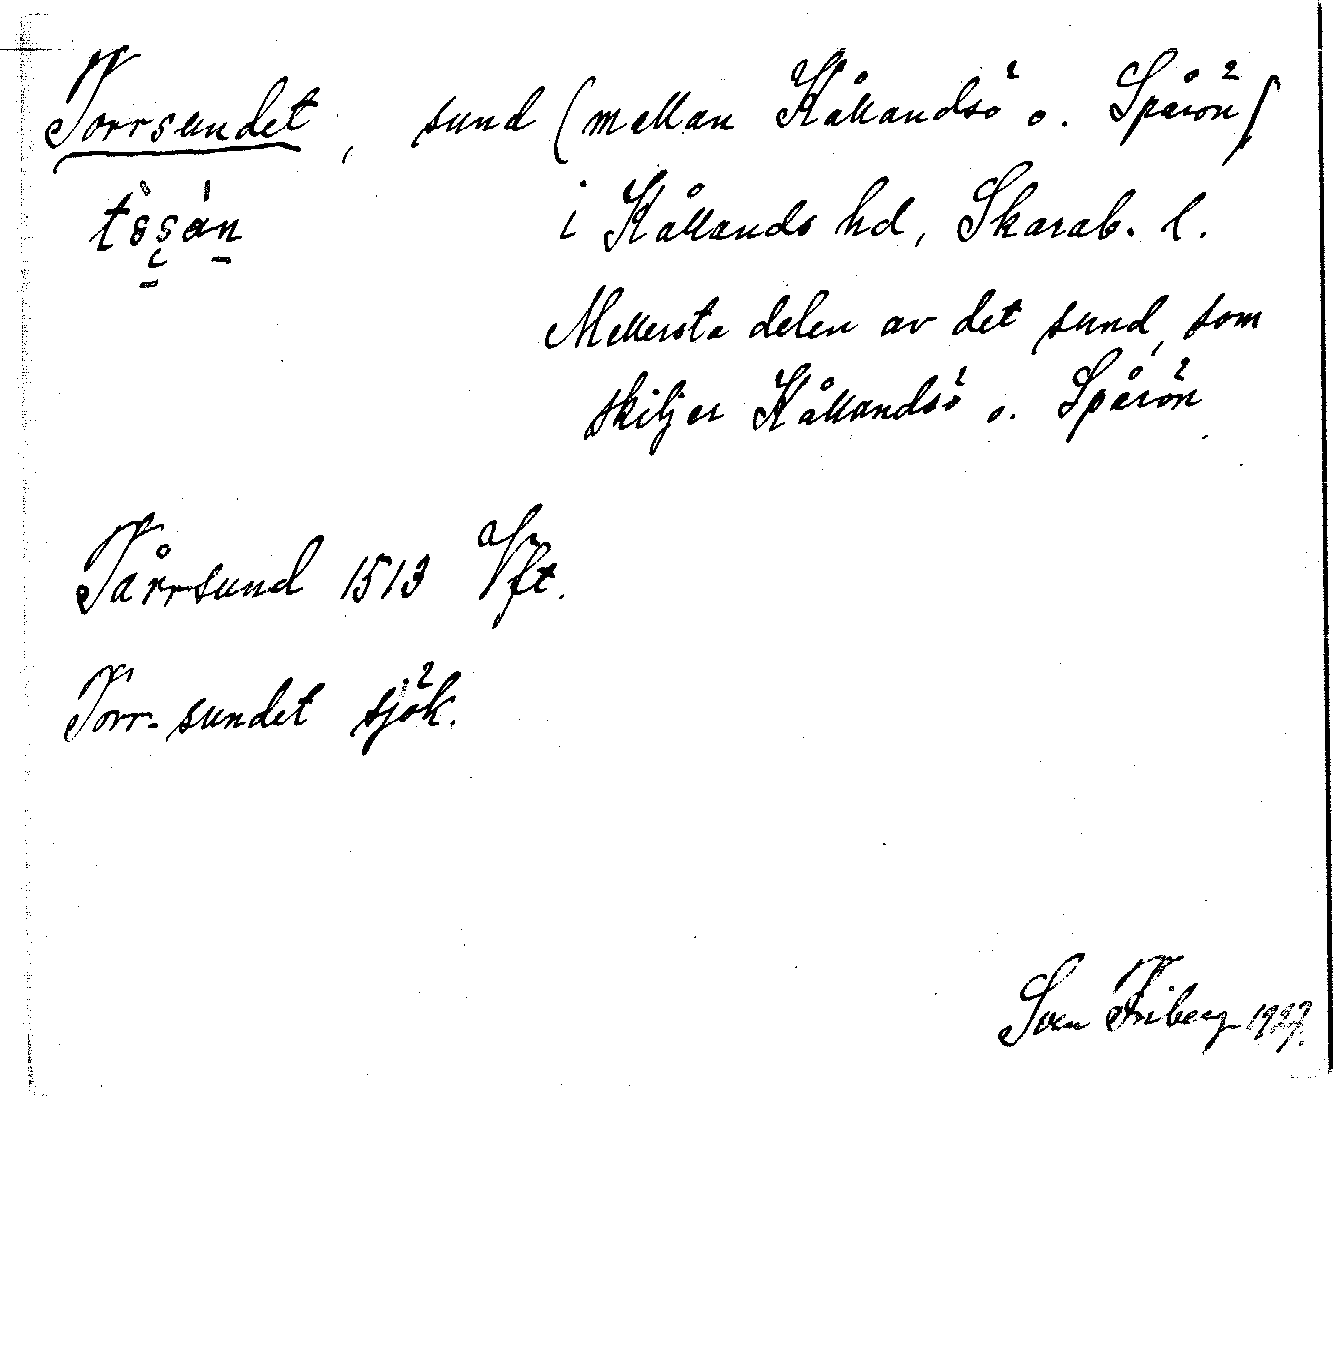 Torrsundet, sund (mellan Kållandsö o. Spårön)
i Kållands hd, Skarab. l.
Mellersta delen av det sund, som
skiljer Kållandsö o. Spårön
Tårrsund 1513 Vft.
Torr-sundet sjök.
Sven Friberg 1927.